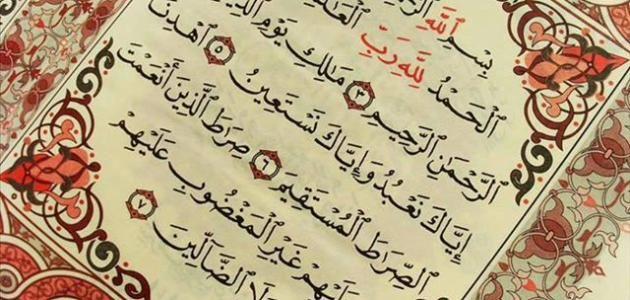 بِسْمِ ٱللَّهِ
ٱلْحَمْدُ لِلَّهِ رَبِّ
ٱلرَّحْمَٰنِ ٱلرَّحِيمِ ٣ مَٰلِكِ يَوْمِ
إِيَّاكَ نَعْبُدُ وَإِيَّاكَ نَسْتَعِينُ ٥ ٱهْدِنَا
ٱلصِّرَٰطَ ٱلْمُسْتَقِيمَ ٦ صِرَٰطَ ٱلَّذِينَ أَنْعَمْتَ
غَيْرِ ٱلْمَغْضُوبِ عَلَيْهِمْ
ٱلضَّآلِّينَ ٧